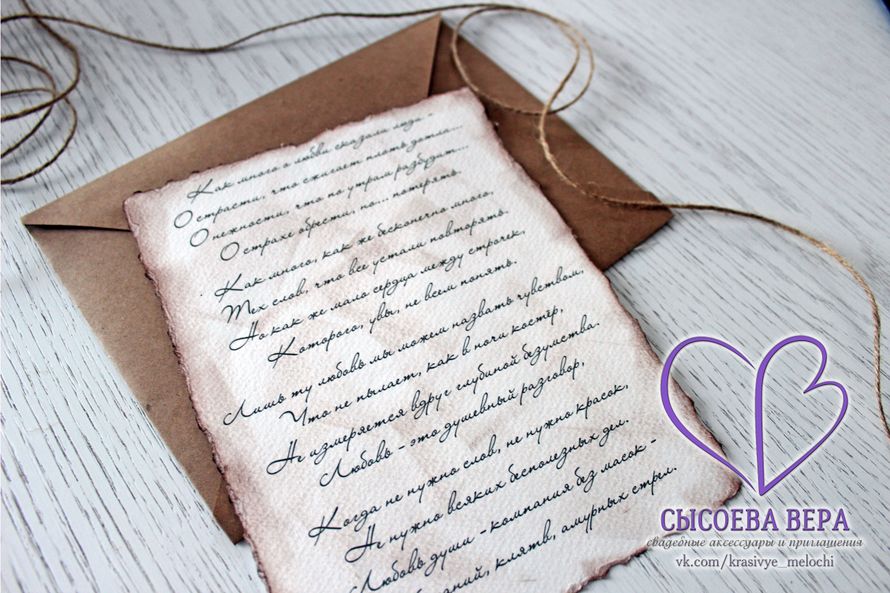 Как много о любви сказали люди -
О страсти, что сжигает плоть дотла...
О нежности, что по утрам разбудит...
О страхе обрести, но... потерять.
Как много, как же бесконечно много,
Тех слов, что все устали повторять.
Но как же мало сердца между строчек,
Которого, увы, не всем понять.
Лишь ту любовь мы можем назвать чувством,
Что не пылает, как в ночи костёр,
Не измеряется вдруг глубиной безумства.
Любовь - это душевный разговор,
Когда не нужно слов, не нужно красок,
Не нужно всяких бесполезных дел.
Любовь души - компания без масок -
клятв, амурных стрел.
СЫСОЕВА ВЕРА
свадебные аксессуары и приглашения
vk.com/krasivye_melochi